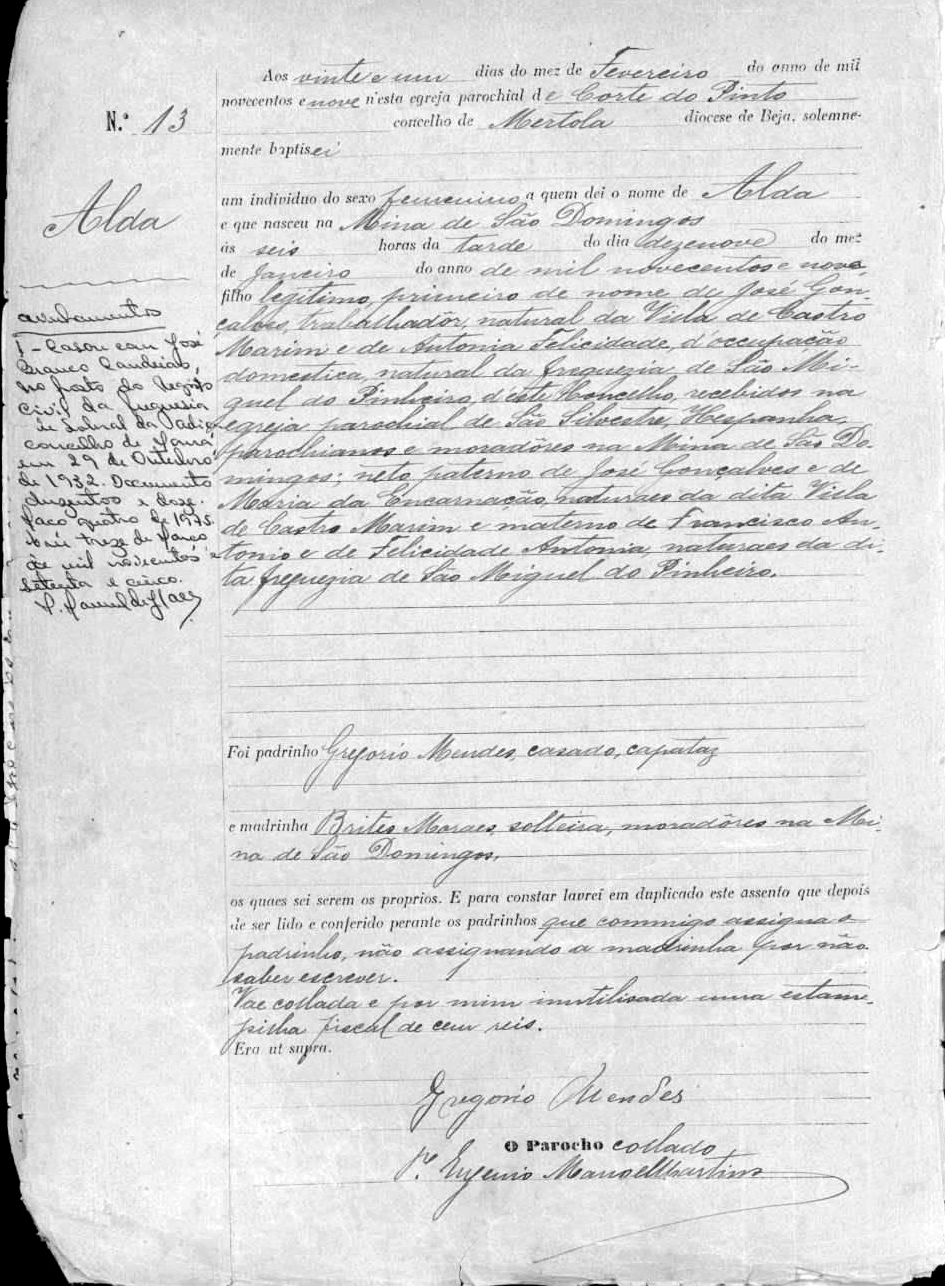 N.º 13
Alda
Aos vinte e um dias do mez de Fevereiro do anno de mil
novecentos e nove n'esta egreja parochial de Corte do Pinto
concelho de Mertola diocese de Beja, solemne-
mente baptisei
um individuo do sexo femenino a quem dei o nome de Alda
e que nasceu na Mina de São Domingos
ás seis horas da tarde do dia dezenove do mez
de Janeiro do anno de mil novecentos e nove,
filho legitimo, primeiro de nome, de José Gon-
çalves, trabalhadôr, natural da Villa de Castro
Marim e de Antonia Felicidade, d'occupação
domestica, natural da freguezia de São Mi-
guel do Pinheiro, d'éste Concelho, recebidos na
egreja parochial de São Silvestre, Hespanha,
parochianos e moradôres na Mina de São Do-
mingos; neto paterno de José Gonçalves e de
Maria da Encarnação, naturaes da dita Villa
de Castro Marim e materno de Francisco An-
tonio e de Felicidade Antonia, naturaes da di-
ta freguezia de São Miguel do Pinheiro.
Foi padrinho Gregorio Mendes, casado, capataz
e madrinha Brites Moraes, solteira, moradôres na Mi-
na de São Domingos,
os quaes sei serem os proprios. E para constar lavrei em duplicado este assento que depois
de ser lido e conferido perante os padrinhos que commigo assigna o
padrinho, não assignando a madrinha por não
saber escrever.
Vae collada e por mim inutilisada uma estam-
pilha fiscal de cem reis.
Era ut supra.
Gregorio Mendes
O Parocho collado
P.e Eugenio Manoel Martins
averbamento
1 - Casou com José
Branco Candeias,
no posto do Registo
Civil da freguesia
de Sobral da Adiça
concelho de Moura
em 29 de Outubro
de 1932. Documento
duzentos e doze.
Maço quatro de 1975.
treze de Março
de mil novecentos e
setenta e cinco.